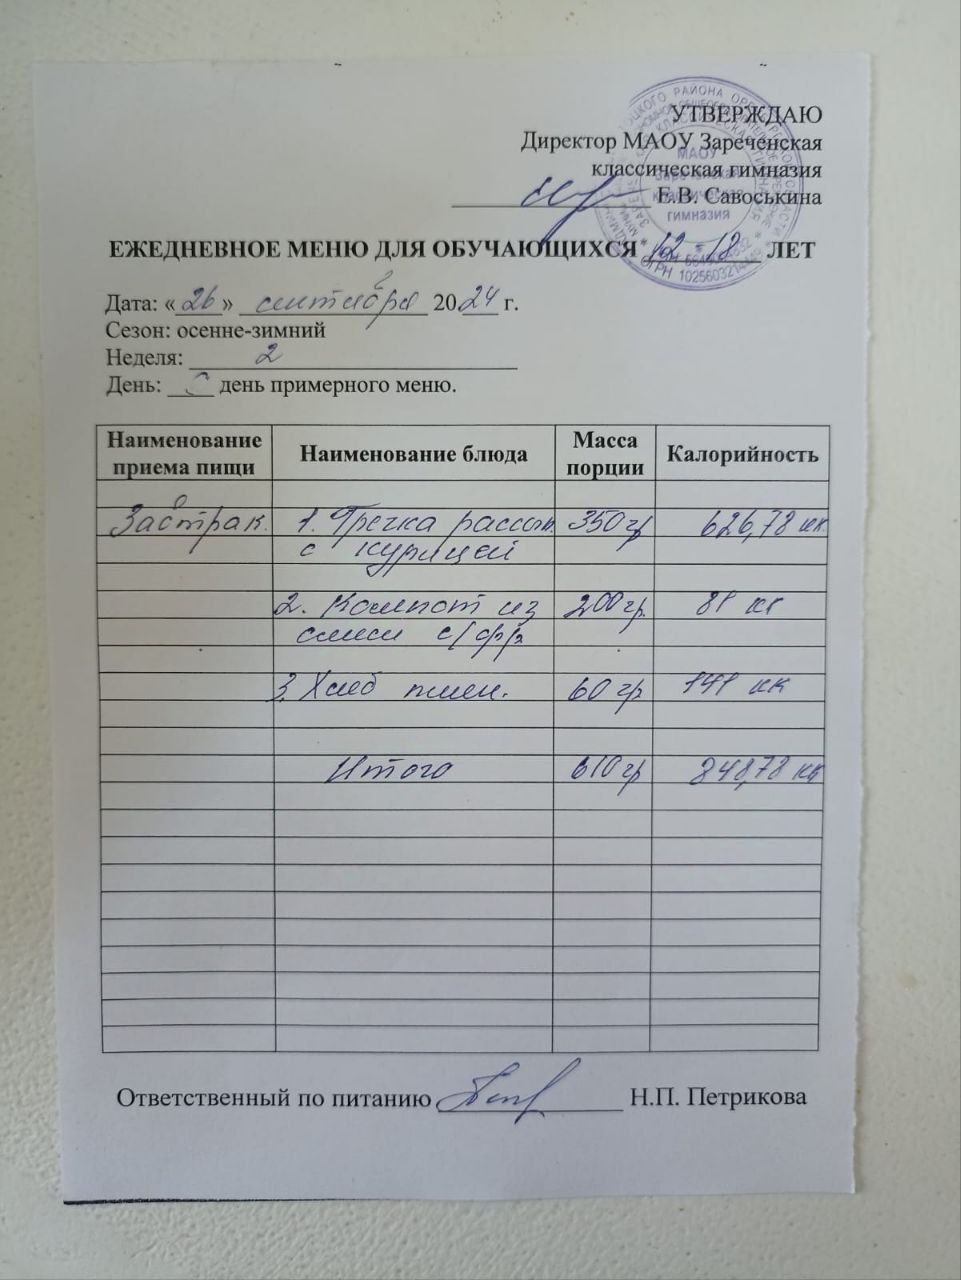 УТВЕРЖДАЮ
Директор МАОУ Зареченская
классическая гимназия
Е.В. Савоськина
МАОУ
Зареченская
классическая
гимназия
ОГРН 1025603214
ЕЖЕДНЕВНОЕ МЕНЮ ДЛЯ ОБУЧАЮЩИХСЯ 12-18 ЛЕТ
Дата: «26» сентября 2024 г.
Сезон: осенне-зимний
Неделя: 2
День: день примерного меню.
Наименование приема пищи Наименование блюда Масса порции Калорийность
Завтрак 1. Гречка рассып 350 гр 626,78 кк
с курицей
2. Компот из 200 гр. 81 кк
смеси с/фр
3. Хлеб пшен. 60 гр 141 кк
Итого 610 гр 848,78 кк
Ответственный по питанию Н.П. Петрикова